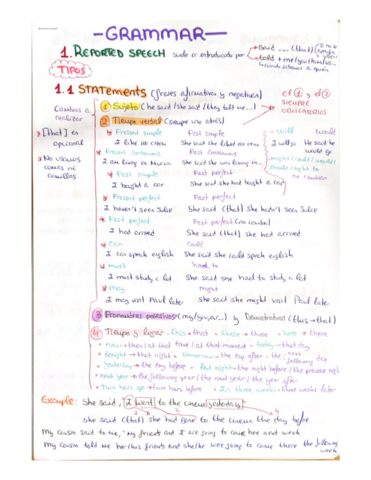 -GRAMMAR-
1. REPORTED SPEECH suele ir introducido por said ... (that)
told + me/you/him/us...
TIPOS
1.1 STATEMENTS (frases afirmativas y negativas)
el ① y el ③ SIEMPRE OBLIGATORIOS
Cambios a realizar
* [that] es opcional
* No usamos comas ni comillas
① Sujeto (he said/she said/they told me...)
② Tiempo verbal (siempre uno atrás)
* Present simple Past simple
I like an crew She said she liked an crew
* Present continuous Past continuous
I am living in She said she was living in
* Past simple Past perfect
I bought a car She said she had bought a car
* Present perfect Past perfect
I haven't seen Julie She said (that) she hadn't seen Julie
* Past perfect Past perfect (no cambia)
I had arrived She said (that) she had arrived
* Can Could
I can speak english She said she could speak english
* must had to
I must study a lot She said she had to study a lot
* May might
I may visit Paul later She said she might visit Paul later
- will would
I will go He said he would go
might/could/would/should/ought to no cambian
③ Pronombres posesivos (my/your...) y Demostrativos (this → that)
④ Tiempo y lugar - this → that - these → those - here → there
• now → then/at that time/at that moment • today → that day
• tonight → that night • tomorrow → the day after - the next/following day
• yesterday → the day before • last night → the night before/the previous night
• next year → the following year/the next year/the year after
• Two hours ago → two hours before • In three weeks → three weeks later
Example: She said, "I went to the cinema yesterday"
She said (that) she had gone to the cinema the day before
My cousin said to me, "My friends and I are going to come here next week
My cousin told me her/his friends and she/he were going to come there the following week